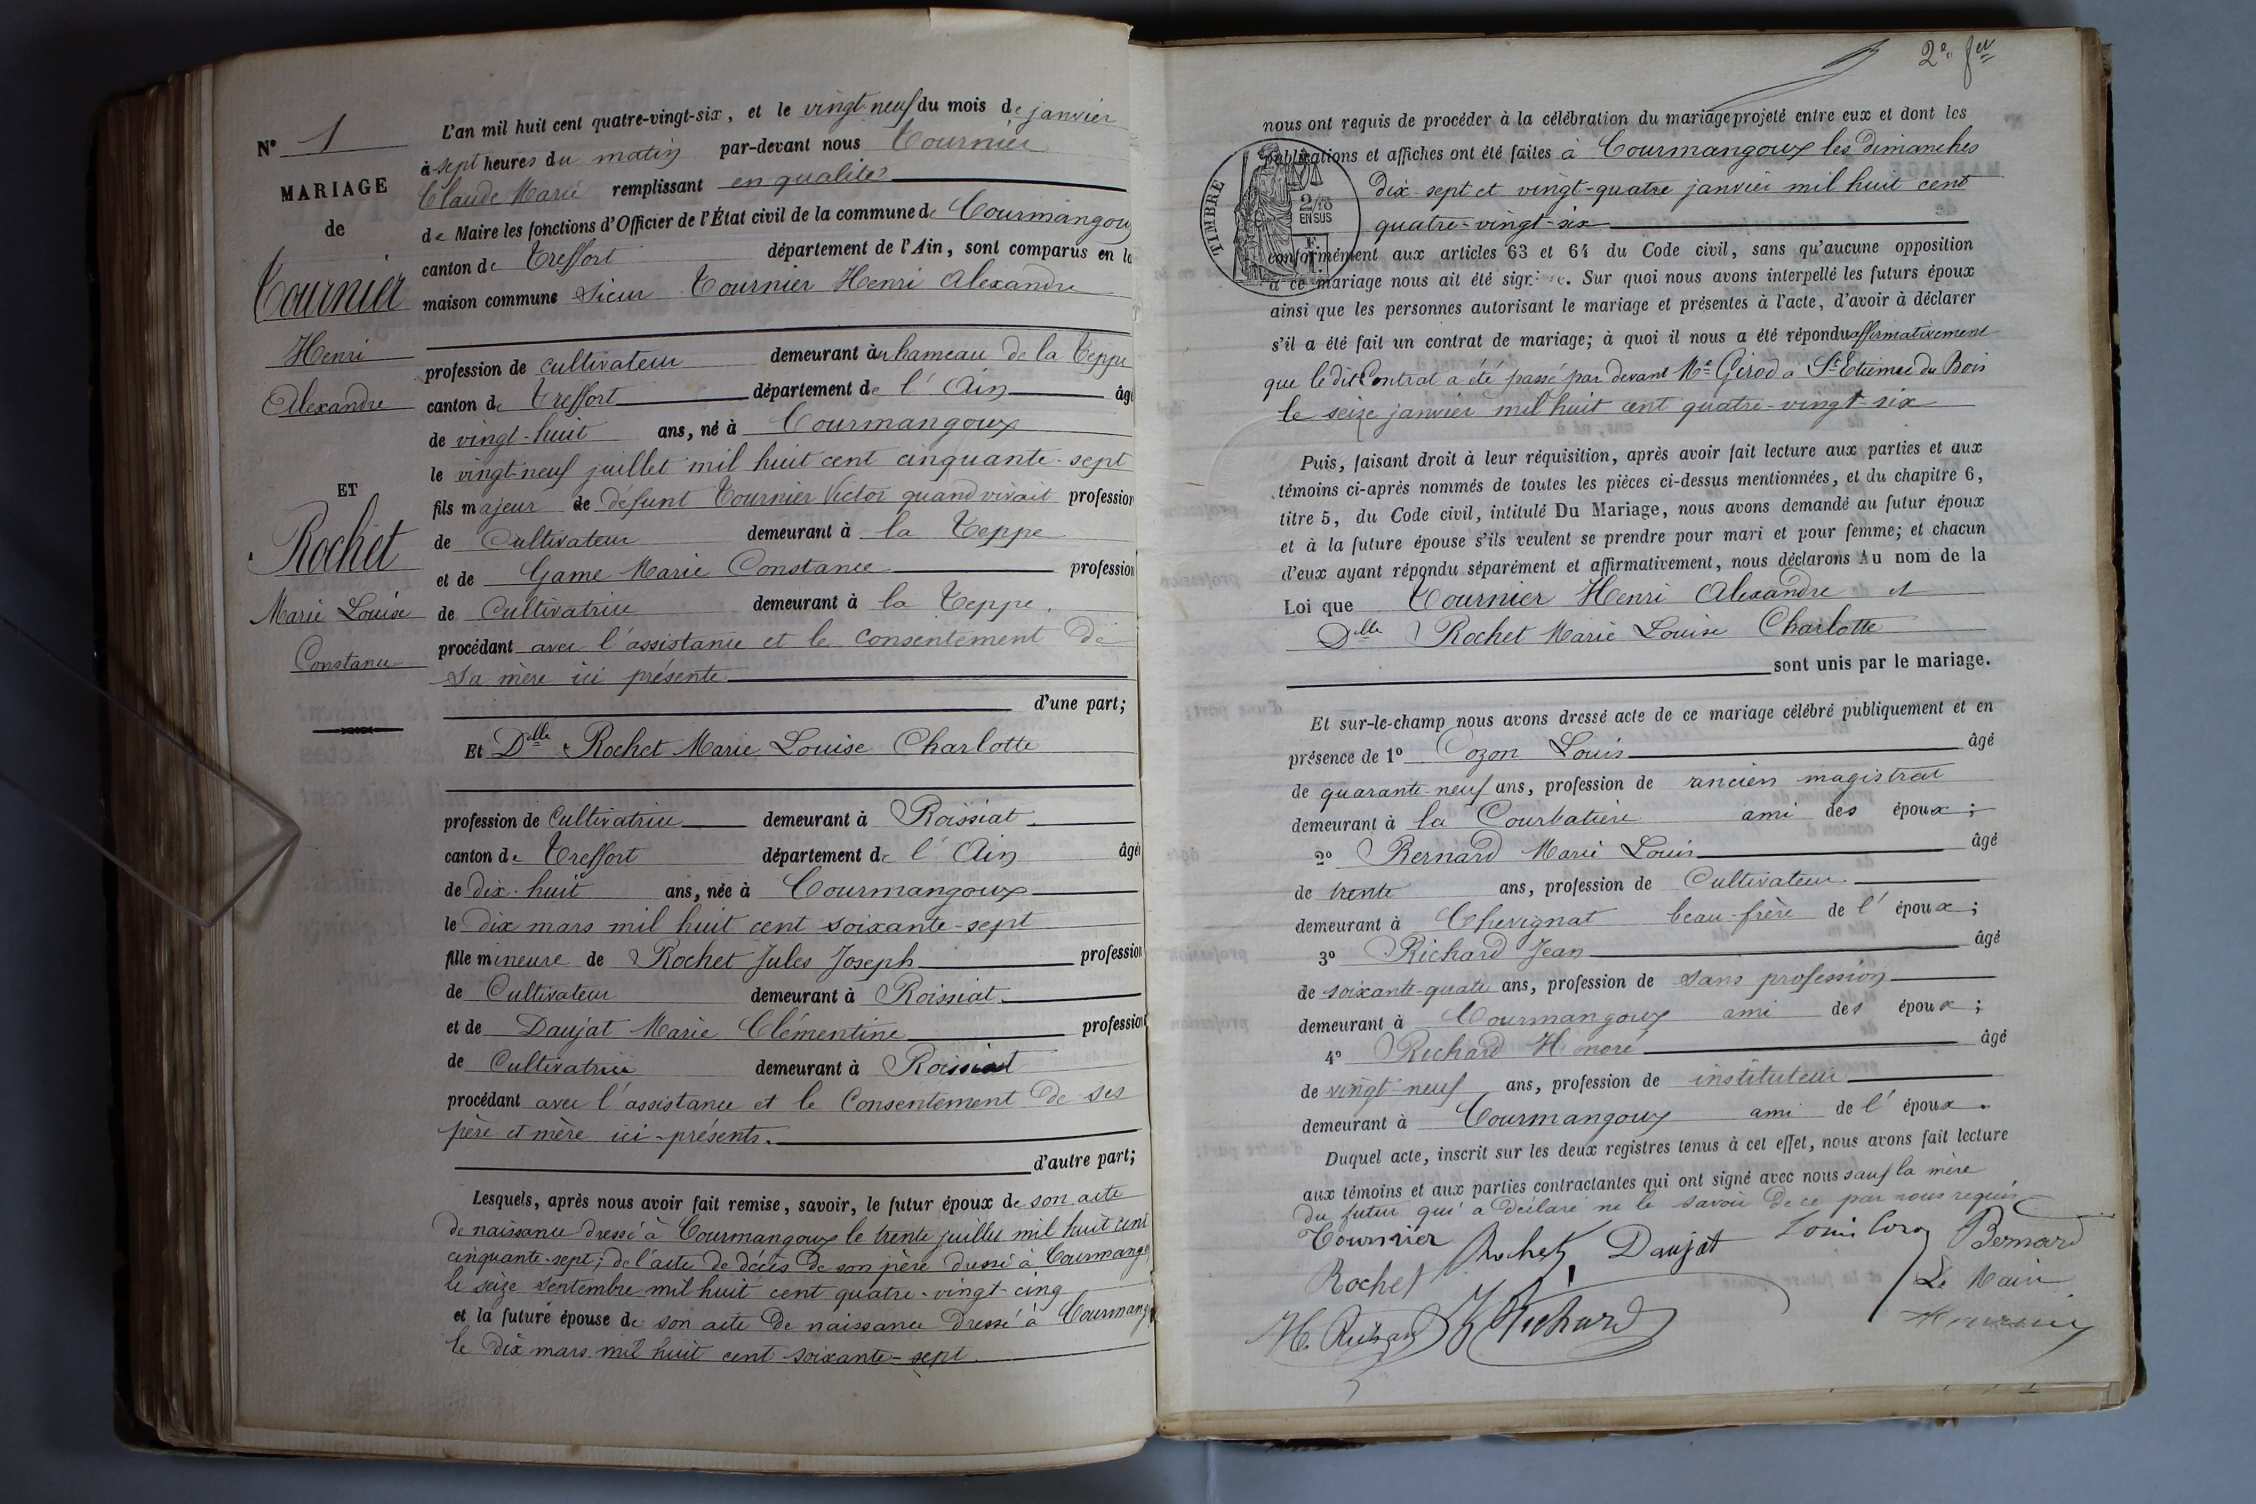 N° 1
MARIAGE
de
Tournier
Henri
Alexandre
ET
Rochet
Marie Louise
Constance
L'an mil huit cent quatre-vingt-six, et le vingt-neuf du mois de janvier
à sept heures du matin par-devant nous Tournier
Claude Marie remplissant en qualité
de Maire les fonctions d'Officier de l'État civil de la commune de Courmangou
canton de Treffort département de l'Ain, sont comparus en la
maison commune Sieur Tournier Henri Alexandre
profession de cultivateur demeurant au hameau de la Teppe
canton de Treffort département de l'Ain âgé
de vingt-huit ans, né à Courmangoux
le vingt-neuf juillet mil huit cent cinquante-sept
fils majeur de défunt Tournier Victor quand vivait profession
de Cultivateur demeurant à la Teppe
et de Game Marie Constance profession
de Cultivatrice demeurant à la Teppe.
procédant avec l'assistance et le consentement de
sa mère ici présente
d'une part;
Et Delle Rochet Marie Louise Charlotte
profession de Cultivatrice demeurant à Roissiat
canton de Treffort département de l'Ain âgée
de dix-huit ans, née à Courmangoux
le dix mars mil huit cent soixante-sept
fille mineure de Rochet Jules Joseph profession
de Cultivateur demeurant à Roissiat
et de Daujat Marie Clémentine profession
de Cultivatrice demeurant à Roissiat
procédant avec l'assistance et le Consentement de ses
père et mère ici-présents.
d'autre part;
Lesquels, après nous avoir fait remise, savoir, le futur époux de son acte
de naissance dressé à Courmangoux le trente juillet mil huit cent
cinquante-sept; de l'acte de décès de son père dressé à Courmango
le seize septembre mil huit cent quatre-vingt-cinq
et la future épouse de son acte de naissance dressé à Courmang
le dix mars mil huit cent soixante-sept
2e fet
nous ont requis de procéder à la célébration du mariage projeté entre eux et dont les
publications et affiches ont été faites à Courmangoux les dimanches
dix-sept et vingt-quatre janvier mil huit cent
quatre-vingt-six
TIMBRE
2/10
EN SUS
conformément aux articles 63 et 64 du Code civil, sans qu'aucune opposition
à ce mariage nous ait été signifiée. Sur quoi nous avons interpellé les futurs époux
ainsi que les personnes autorisant le mariage et présentes à l'acte, d'avoir à déclarer
s'il a été fait un contrat de mariage; à quoi il nous a été répondu affirmativement
que le dit Contrat a été passé par devant Me Girod à St Etienne du Bois
le seize janvier mil huit cent quatre-vingt-six
Puis, faisant droit à leur réquisition, après avoir fait lecture aux parties et aux
témoins ci-après nommés de toutes les pièces ci-dessus mentionnées, et du chapitre 6,
titre 5, du Code civil, intitulé Du Mariage, nous avons demandé au futur époux
et à la future épouse s'ils veulent se prendre pour mari et pour femme; et chacun
d'eux ayant répondu séparément et affirmativement, nous déclarons Au nom de la
Loi que Tournier Henri Alexandre et
Delle Rochet Marie Louise Charlotte
sont unis par le mariage.
Et sur-le-champ nous avons dressé acte de ce mariage célébré publiquement et en
présence de 1° Cozon Louis âgé
de quarante-neuf ans, profession de ancien magistrat
demeurant à la Courbatière ami des époux;
2° Bernard Marie Louis âgé
de trente ans, profession de Cultivateur
demeurant à Chevignat beau-frère de l'époux;
3° Richard Jean âgé
de soixante-quatre ans, profession de sans profession
demeurant à Courmangoux ami des époux;
4° Richard Honoré âgé
de vingt-neuf ans, profession de instituteur
demeurant à Courmangoux ami de l'époux.
Duquel acte, inscrit sur les deux registres tenus à cet effet, nous avons fait lecture
aux témoins et aux parties contractantes qui ont signé avec nous sauf la mère
du futur qui a déclaré ne le savoir de ce par nous requis
Tournier Rochet Daujat Louis Cozon Bernard
Rochet Le Maire
H. Richard Richard Tournier